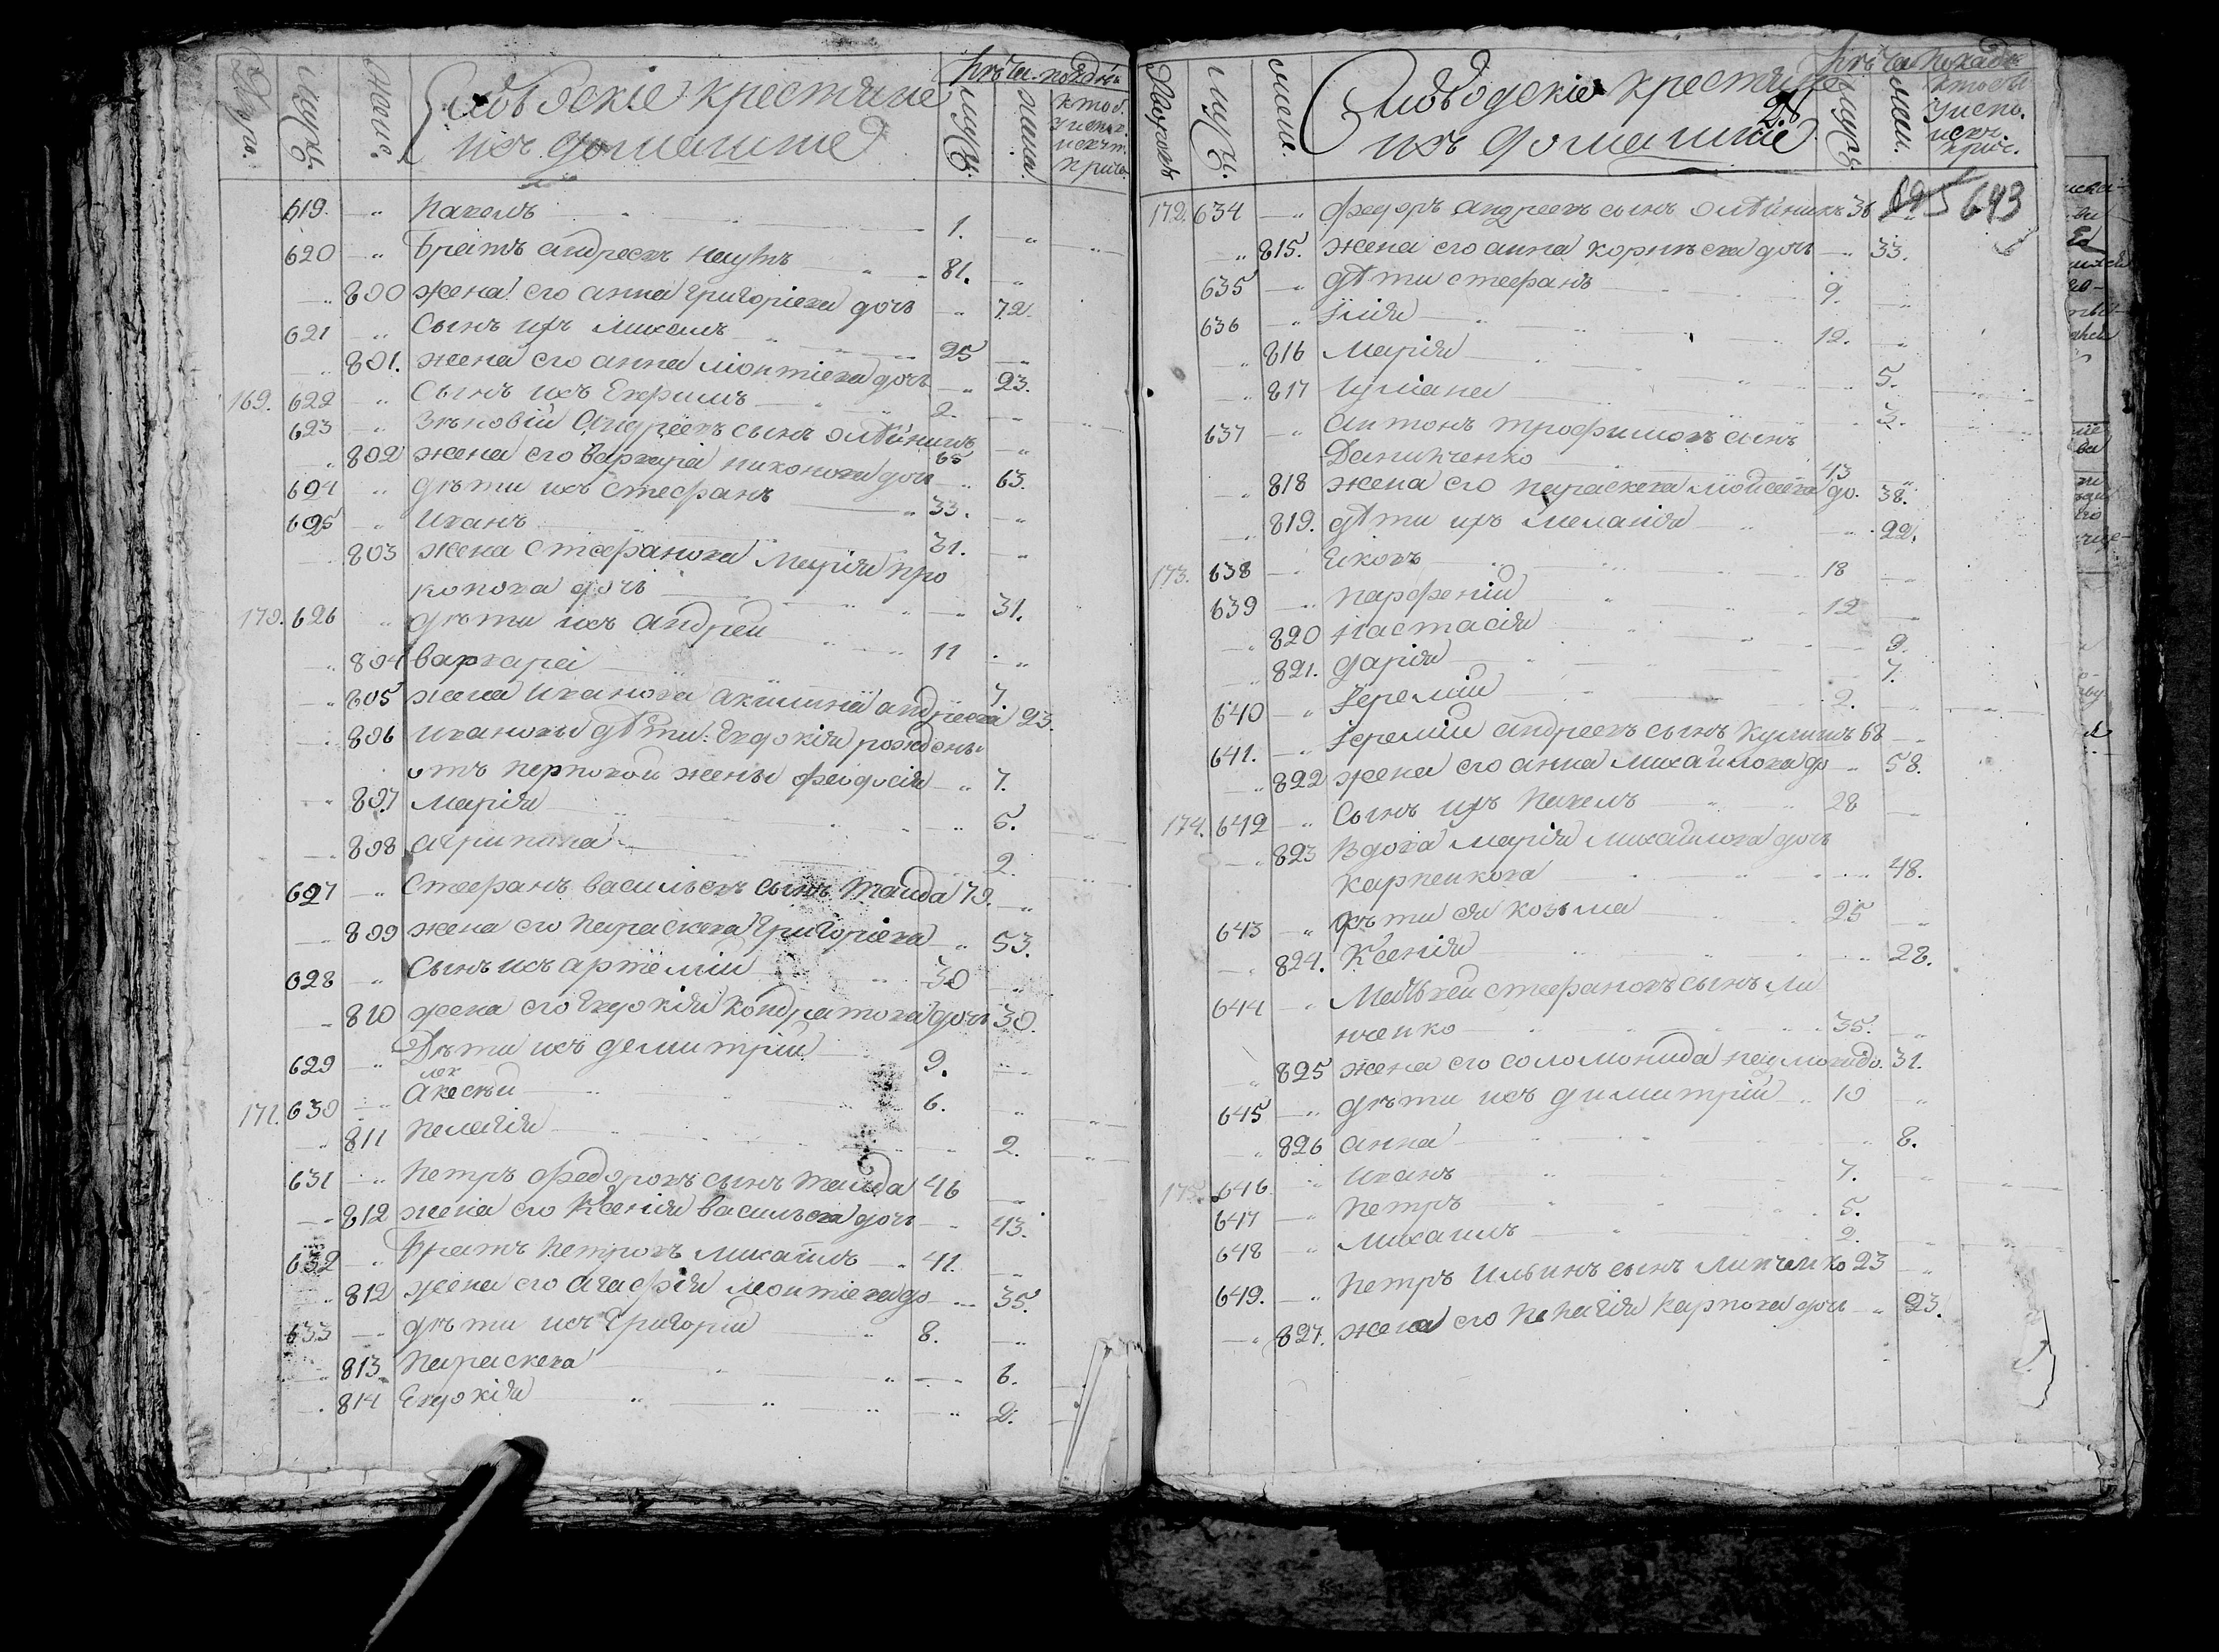 муж.
женс.
крестяне
ихъ домашние
муж.
619. Павелъ 1.
620 братъ андреевъ наумъ 81.
800 жена его анна григоріева дочь 72.
621 Сынъ ихъ михаилъ 25
801. жена его анна леонтіева дочь 23.
169. 622 Сынъ ихъ Ефримъ 2.
623 Зѣновій Андреевъ сынъ олѣйникъ 65
802 жена его варвара никонова дочь 63.
694 дѣти ихъ стефанъ 33.
695 Иванъ 31.
803 жена стефанова Марія про
копова дочь 31.
170. 626 дѣти ихъ андрей 11
804 варвара 7.
805 жена иванова акилина андреева 23.
806 ивановы дѣти: Евдокія рожденны
отъ первой жены феодосія 7.
807 Марія 5.
808 агрипина 2.
627 Стефанъ васильевъ сынъ 79.
809 жена его Параскева григоріева 53.
628 Сынъ ихъ артемій 30
810 жена его Евдокія кондратова дочь 30.
629 Дѣти ихъ демитрій 9.
171. 630 алексѣй 6.
811 Пелагія 2.
631 Петръ федоровъ сынъ 46
812 жена его Ксенія васильева дочь 43.
632 братъ Петровъ михаилъ 41.
812 жена его агафія леонтіева до 35.
633 дѣти ихъ григорій 8.
813. Параскева 6.
814 Евдокія 2.
муж.
жен.
крестяне
28
ихъ домашние
695 643
172. 634 федоръ андреевъ сынъ олѣйникъ 36
815. жена его анна корнѣева дочь 33.
635 дѣти стефанъ 9.
636 Iлія 12.
816 Марія 5.
817 Уліана 3.
637 антонъ трофимовъ сынъ
Данилченко 43
818 жена его параскева мойсеева до. 38.
819. дѣти ихъ меланія 22.
173. 638 Яковъ 18
639 парфеній 12
820 Настасія 9.
821. дарія 7.
640 Iеремій 2.
641. Iеремій андреевъ сынъ кулишъ 68
822 жена его анна михайлова до 58.
174. 642 Сынъ ихъ Павелъ 28
823 вдова марія михайлова дочь
карпенкова 48.
643 дѣти ея козьма 25
824. Ксенія 28.
644 Матвѣй стефановъ сынъ ли
нченко 35.
825 жена его соломонида наумова до. 31.
645 дѣти ихъ димитрій 10
826 анна 8.
175. 646 иванъ 7.
647 Петръ 5.
648 михаилъ 2.
649. Петръ Ильинъ сынъ линченко 23
827. жена его пелагія карпова дочь 23.